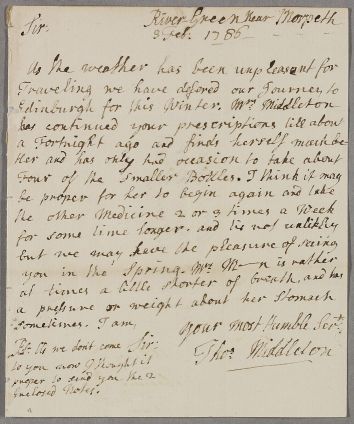 River Green Near Morpeth
Sir. 3 Feb. 1786
As the weather has been unpleasant for
Traveling we have defered our Journey to
Edinburgh for this Winter. Mrs Middleton
has continued your prescriptions till abou
a Fortnight ago and finds herself much be
ther and has only had occasion to take about
Four of the Smaller Bottles. I think it may
be proper for her to begin again and take
the other Medicine 2 or 3 times a Week
for some time longer. and tis not unlikely
but we may have the pleasure of seeing
you in the Spring. Mrs M—n is rather
at times a little shorter of breath, and has
a pressure or weight about her Stomach
sometimes. I am,
Sir:
your most Humble Servt.
Thos. Middleton
PS: As we dont come
to you now I thought it
proper to send you the 2
Enclosed Notes.